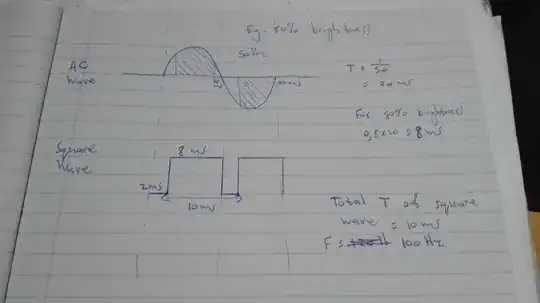 Eg. 80% brightness
50Hz
AC
Wave
10
ms
20ms
T = 1/50
= 20 ms
For 80% brightness
0,8x10 = 8 ms
Square
Wave
8 ms
2ms
10ms
Total T of square
wave = 10 ms
F = 100 Hz